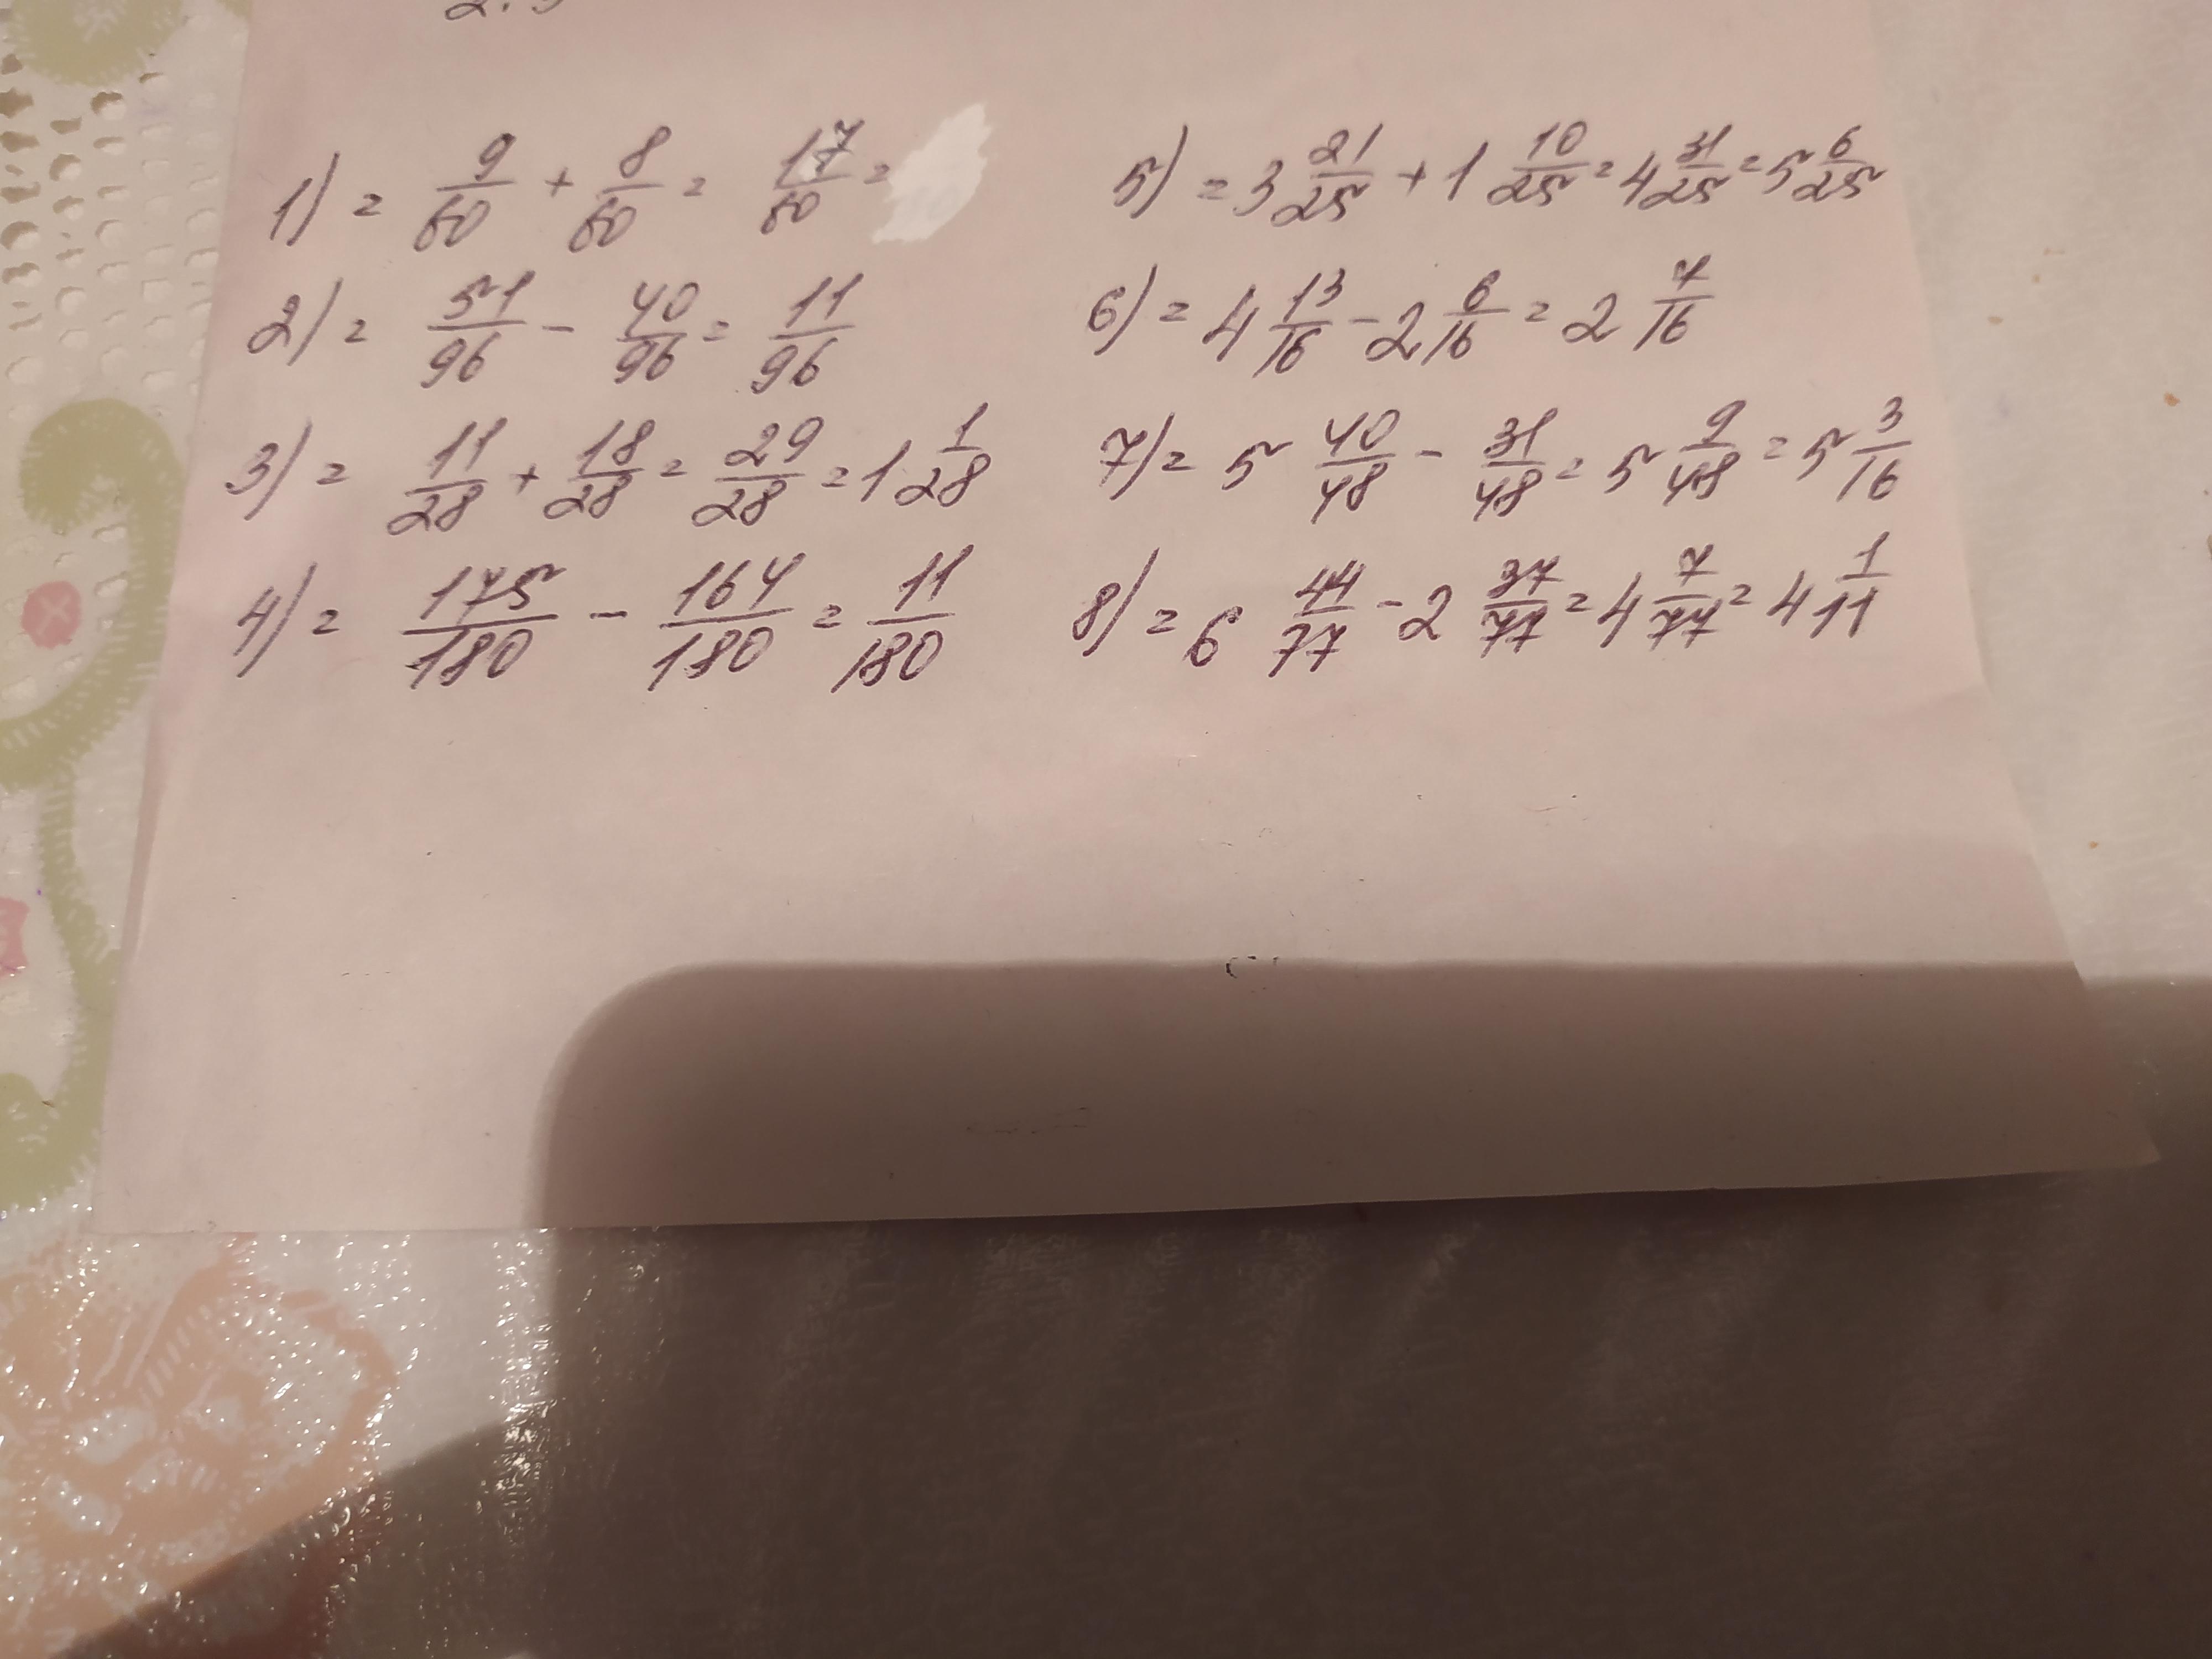 1) = 9/60 + 8/60 = 17/60 =
2) = 51/96 - 40/96 = 11/96
3) = 11/28 + 18/28 = 29/28 = 1 1/28
4) = 175/180 - 164/180 = 11/180
5) = 3 21/25 + 1 10/25 = 4 31/25 = 5 6/25
6) = 4 13/16 - 2 6/16 = 2 7/16
7) = 5 40/48 - 31/48 = 5 9/48 = 5 3/16
8) = 6 44/77 - 2 37/77 = 4 7/77 = 4 1/11